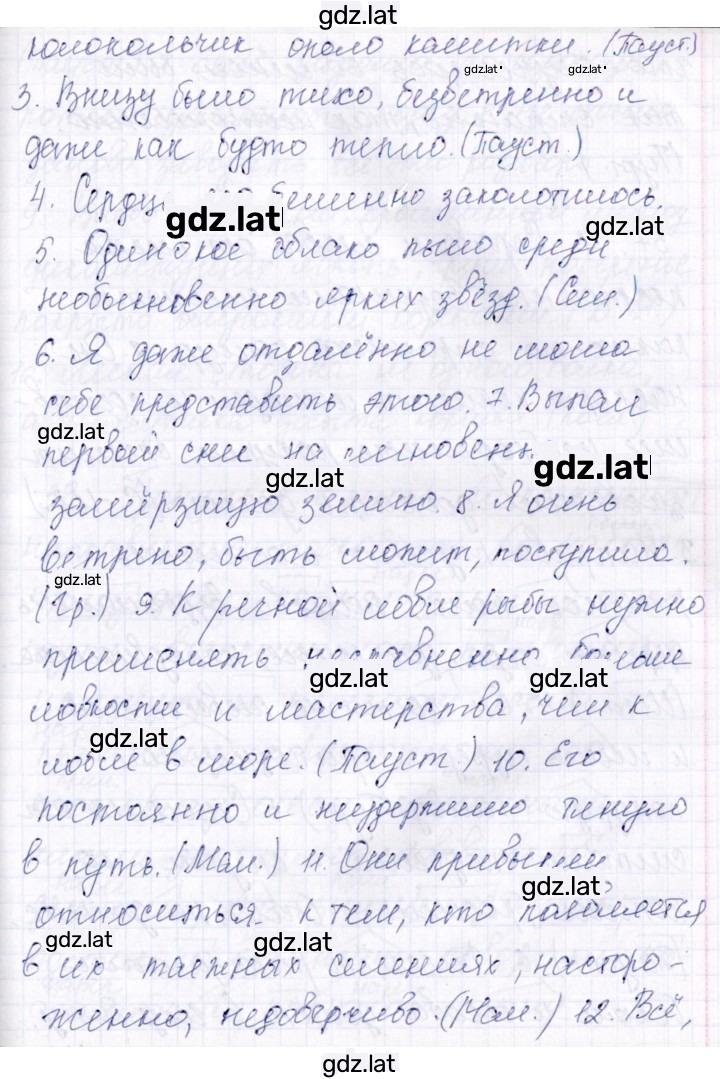 gdz.lat
колокольчик около калитки. (Пауст.)
gdz.lat gdz.lat
3. Внизу было тихо, безветренно и
даже как будто тепло. (Пауст.)
4. бешенно заколотилось.
gdz.lat gdz.lat
5. Одинокое облако плыло среди
необыкновенно ярких звёзд. (Сим.)
6. Я даже отдалённо не могла
себе представить этого. 7. Выпал
gdz.lat
первый снег на
gdz.lat gdz.lat
замёрзшую землю. 8. Я очень
ветрено, быть может, поступила.
gdz.lat
(Гр.) 9. К речной ловле рыбы нужно
применять больше
gdz.lat gdz.lat
ловкости и мастерства, чем к
gdz.lat
ловле в море. (Пауст.) 10. Его
постоянно и неудержимо тянуло
в путь. (Мам.) 11. Они привыкли
gdz.lat
относиться к тем, кто появляется
gdz.lat gdz.lat
в их таёжных селениях, насторо-
женно, недоверчиво. (Мам.) 12. Всё,
gdz.lat